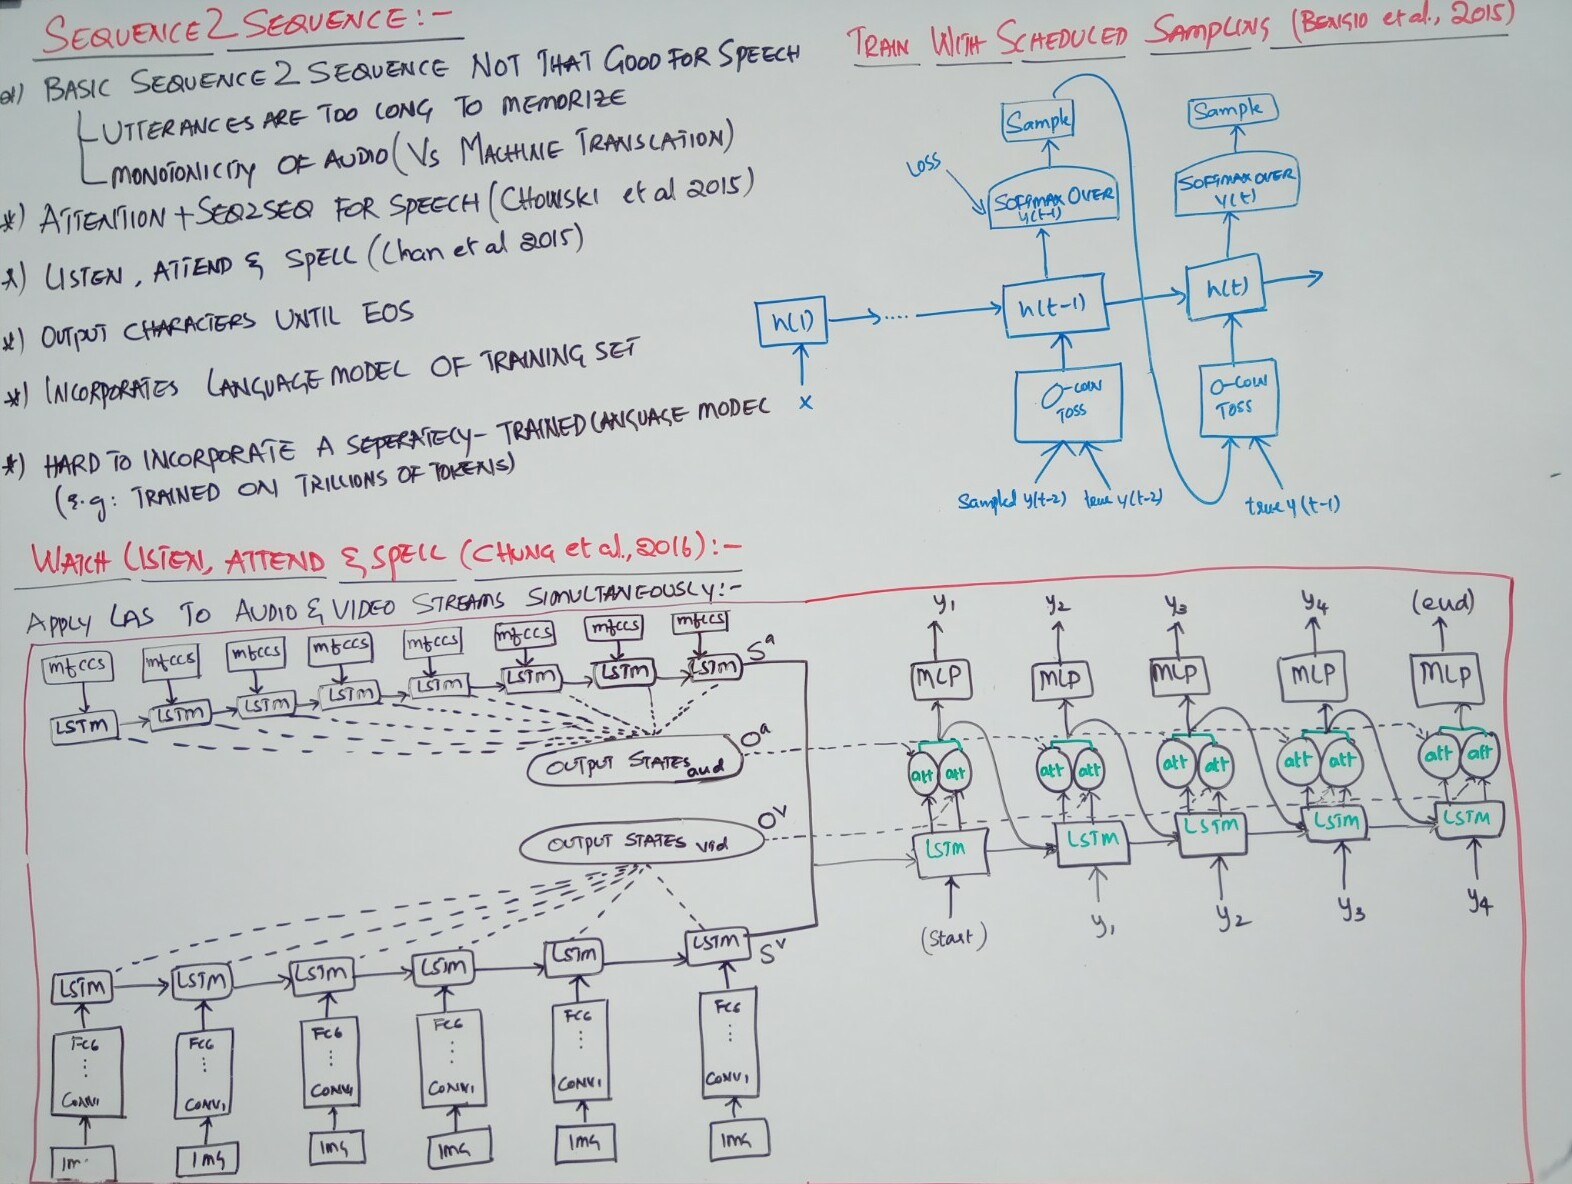 SEQUENCE2 SEQUENCE:-
*) BASIC SEQUENCE2 SEQUENCE NOT THAT GOOD FOR SPEECH
UTTERANCES ARE TOO LONG TO MEMORIZE
MONOTONICITY OF AUDIO (VS MACHINE TRANSLATION)
*) ATTENTION + SEQ2SEQ FOR SPEECH (CHOWSKI et al 2015)
*) LISTEN, ATTEND & SPELL (Chan et al 2015)
*) OUTPUT CHARACTERS UNTIL EOS
*) INCORPORATES LANGUAGE MODEL OF TRAINING SET
*) HARD TO INCORPORATE A SEPERATELY-TRAINED LANGUAGE MODEL
(e.g: TRAINED ON TRILLIONS OF TOKENS)
TRAIN WITH SCHEDULED SAMPLING (BENGIO et al., 2015)
Sample
Sample
LOSS
SOFTMAX OVER
y(t-1)
SOFTMAX OVER
y(t)
h(1)
....
h(t-1)
h(t)
x
0-COIN
TOSS
0-COIN
TOSS
Sampled y(t-2) true y(t-2)
true y(t-1)
WATCH LISTEN, ATTEND & SPELL (CHUNG et al., 2016):-
APPLY LAS TO AUDIO & VIDEO STREAMS SIMULTANEOUSLY:-
mfccs mfccs mfccs mfccs mfccs mfccs mfccs mfccs
LSTM LSTM LSTM LSTM LSTM LSTM LSTM LSTM Sᵃ
OUTPUT STATES aud Oᵃ
OUTPUT STATES vid Oᵛ
LSTM LSTM LSTM LSTM LSTM LSTM Sᵛ
FC6 FC6 FC6 FC6 FC6 FC6
⋮ ⋮ ⋮ ⋮ ⋮ ⋮
CONV1 CONV1 CONV1 CONV1 CONV1 CONV1
IMG IMG IMG IMG IMG
y₁ y₂ y₃ y₄ (end)
MLP MLP MLP MLP MLP
att att att att att att att att att att
LSTM LSTM LSTM LSTM LSTM
(Start) y₁ y₂ y₃ y₄